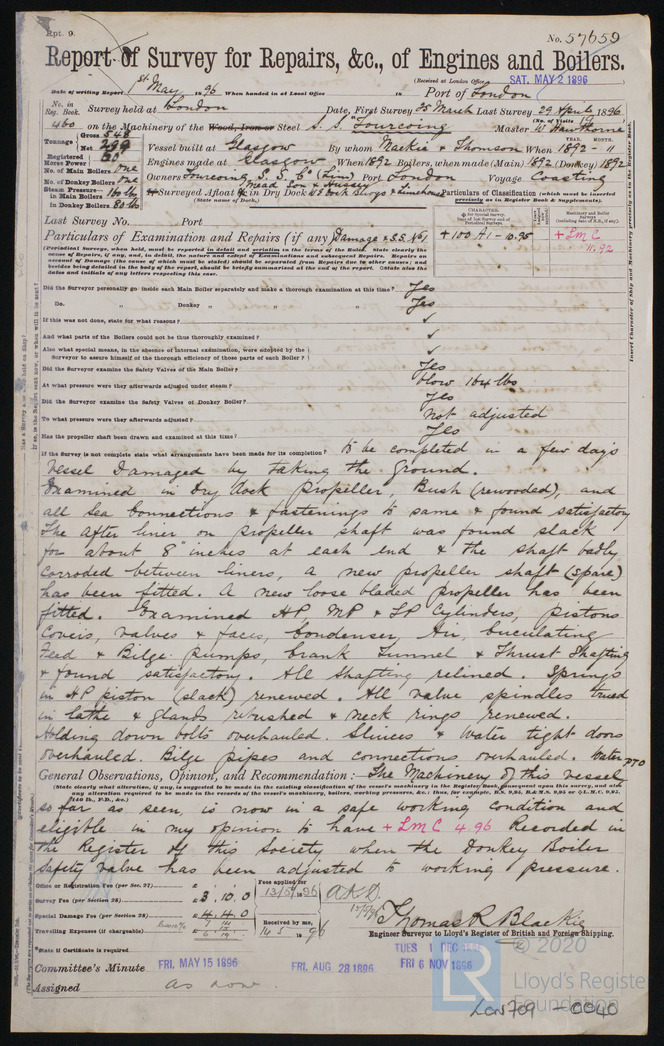 Rpt. 9.
No. 57659
Report of Survey for Repairs, &c., of Engines and Boilers.
(Received at London Office SAT. MAY 2 1896
Date of writing Report 1st May 1896 When handed in at Local Office 18 Port of London
No. in Reg. Book. Survey held at London Date, First Survey 25 March Last Survey 29 April 1896
(No. of Visits
460 on the Machinery of the Wood, Iron or Steel S. S. "Fourcoing" Master W Hawthorne
Tonnage Gross 548
Net 299
Vessel built at Glasgow By whom Mackie & Thomson When 1892 - 11
Registered Horse Power
Engines made at Glasgow When 1892 Boilers, when made (Main) 1892 (Donkey) 1892
No. of Main Boilers One
No. of Donkey Boilers One
Owners Fourcoing S. S. Co (Lim) Port London Voyage Coasting
Steam Pressure in Main Boilers 164 lb
in Donkey Boilers 80 lb
If Surveyed Afloat or in Dry Dock
(State name of Dock.)
Particulars of Classification (which must be inserted precisely as in Register Book & Supplements).
Last Survey No. Port
Particulars of Examination and Repairs (if any) Damage & S.S. No 1
+ 100 A1 - 10.95
+ LMC
11.92
Did the Surveyor personally go inside each Main Boiler separately and make a thorough examination at this time? Yes
Do. " " Donkey " " " " Yes
If this was not done, state for what reasons? ✓
And what parts of the Boilers could not be thus thoroughly examined? ✓
Also what special means, in the absence of internal examination, were adopted by the Surveyor to assure himself of the thorough efficiency of those parts of each Boiler? ✓
Did the Surveyor examine the Safety Valves of the Main Boiler? Yes
At what pressure were they afterwards adjusted under steam? blow 164 lbs
Did the Surveyor examine the Safety Valves of Donkey Boiler? Yes
To what pressure were they afterwards adjusted? Not adjusted
Has the propeller shaft been drawn and examined at this time? Yes
If the Survey is not complete state what arrangements have been made for its completion? To be completed in a few days
Vessel Damaged by taking the ground.
Examined in Dry dock propeller, Bush (rewooded), and
all Sea Connections & fastenings to same & found satisfactory
The after liner on propeller shaft was found slack
for about 8" inches at each end & the shaft badly
corroded between liners, a new propeller shaft (spare)
has been fitted. A new loose bladed propeller has been
fitted. Examined HP MP & LP Cylinders, pistons
Covers, valves & faces, Condenser, Air, Circulating
Feed & Bilge pumps, Crank Tunnel & Thrust Shafting
& found satisfactory. All Shafting relined. Springs
in HP piston (slack) renewed. All valve spindles trued
in lathe & glands rebushed & neck rings renewed.
Holding down bolts overhauled. Sluices & Water tight doors
overhauled. Bilge pipes and connections overhauled. Water PTO
General Observations, Opinion, and Recommendation:— The Machinery of this vessel
(State clearly what alteration, if any, is suggested to be made in the existing classification of the vessel's machinery in the Register Book, consequent upon this survey, and also
so far as seen, is now in a safe working condition and
eligible in my opinion to have + LMC 4.96 Recorded in
the Register of this Society when the Donkey Boiler
Safety valve has been adjusted to working pressure.
Office or Registration Fee (per Sec. 27) £
Survey Fee (per Section 28) £ 3.10.0
Special Damage Fee (per Section 28) £ 4.4.0
Travelling Expenses (if chargeable) £
Fees applied for
13/5/1896
Received by me,
14.5.1896
Thomas R Blackie
Engineer Surveyor to Lloyd's Register of British and Foreign Shipping.
*State if Certificate is required
Committee's Minute FRI. MAY 15 1896 FRI. AUG 28 1896 TUES 1 DEC 1896
FRI 6 NOV 1896
Assigned as now
© 2020
LR
Lloyd's Register
Foundation
LON709 - 0040